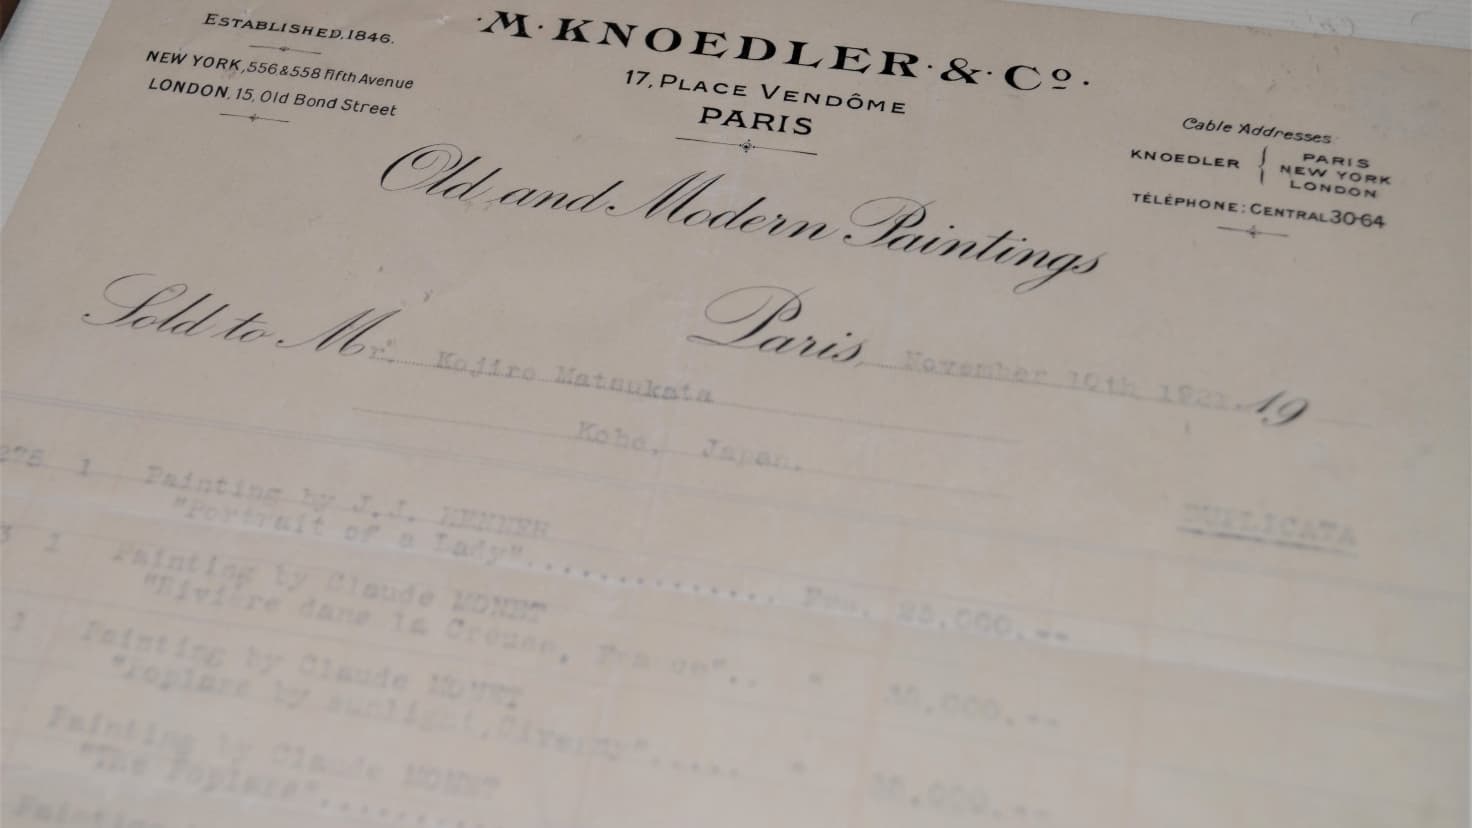 ESTABLISHED, 1846.
NEW YORK, 556 & 558 Fifth Avenue
LONDON, 15, Old Bond Street
· M · KNOEDLER · & · Cº ·
17, PLACE VENDÔME
PARIS
Cable Addresses:
KNOEDLER { PARIS
NEW YORK
LONDON
TÉLÉPHONE: CENTRAL 30-64
Old and Modern Paintings
Paris, November 10th 1921. 19
Sold to Mr. Kojiro Matsukata
Kobe, Japan.
DUPLICATA
1 Painting by J.J. HENNER
"Portrait of a Lady".............. Frs. 25.000.--
1 Painting by Claude MONET
"Rivière dans la Creuse, France".. " .000.--
1 Painting by Claude MONET
"Poplars by sunlight, Giverny"..... " .000.--
Painting by Claude MONET
"The Poplars"..........
Painting